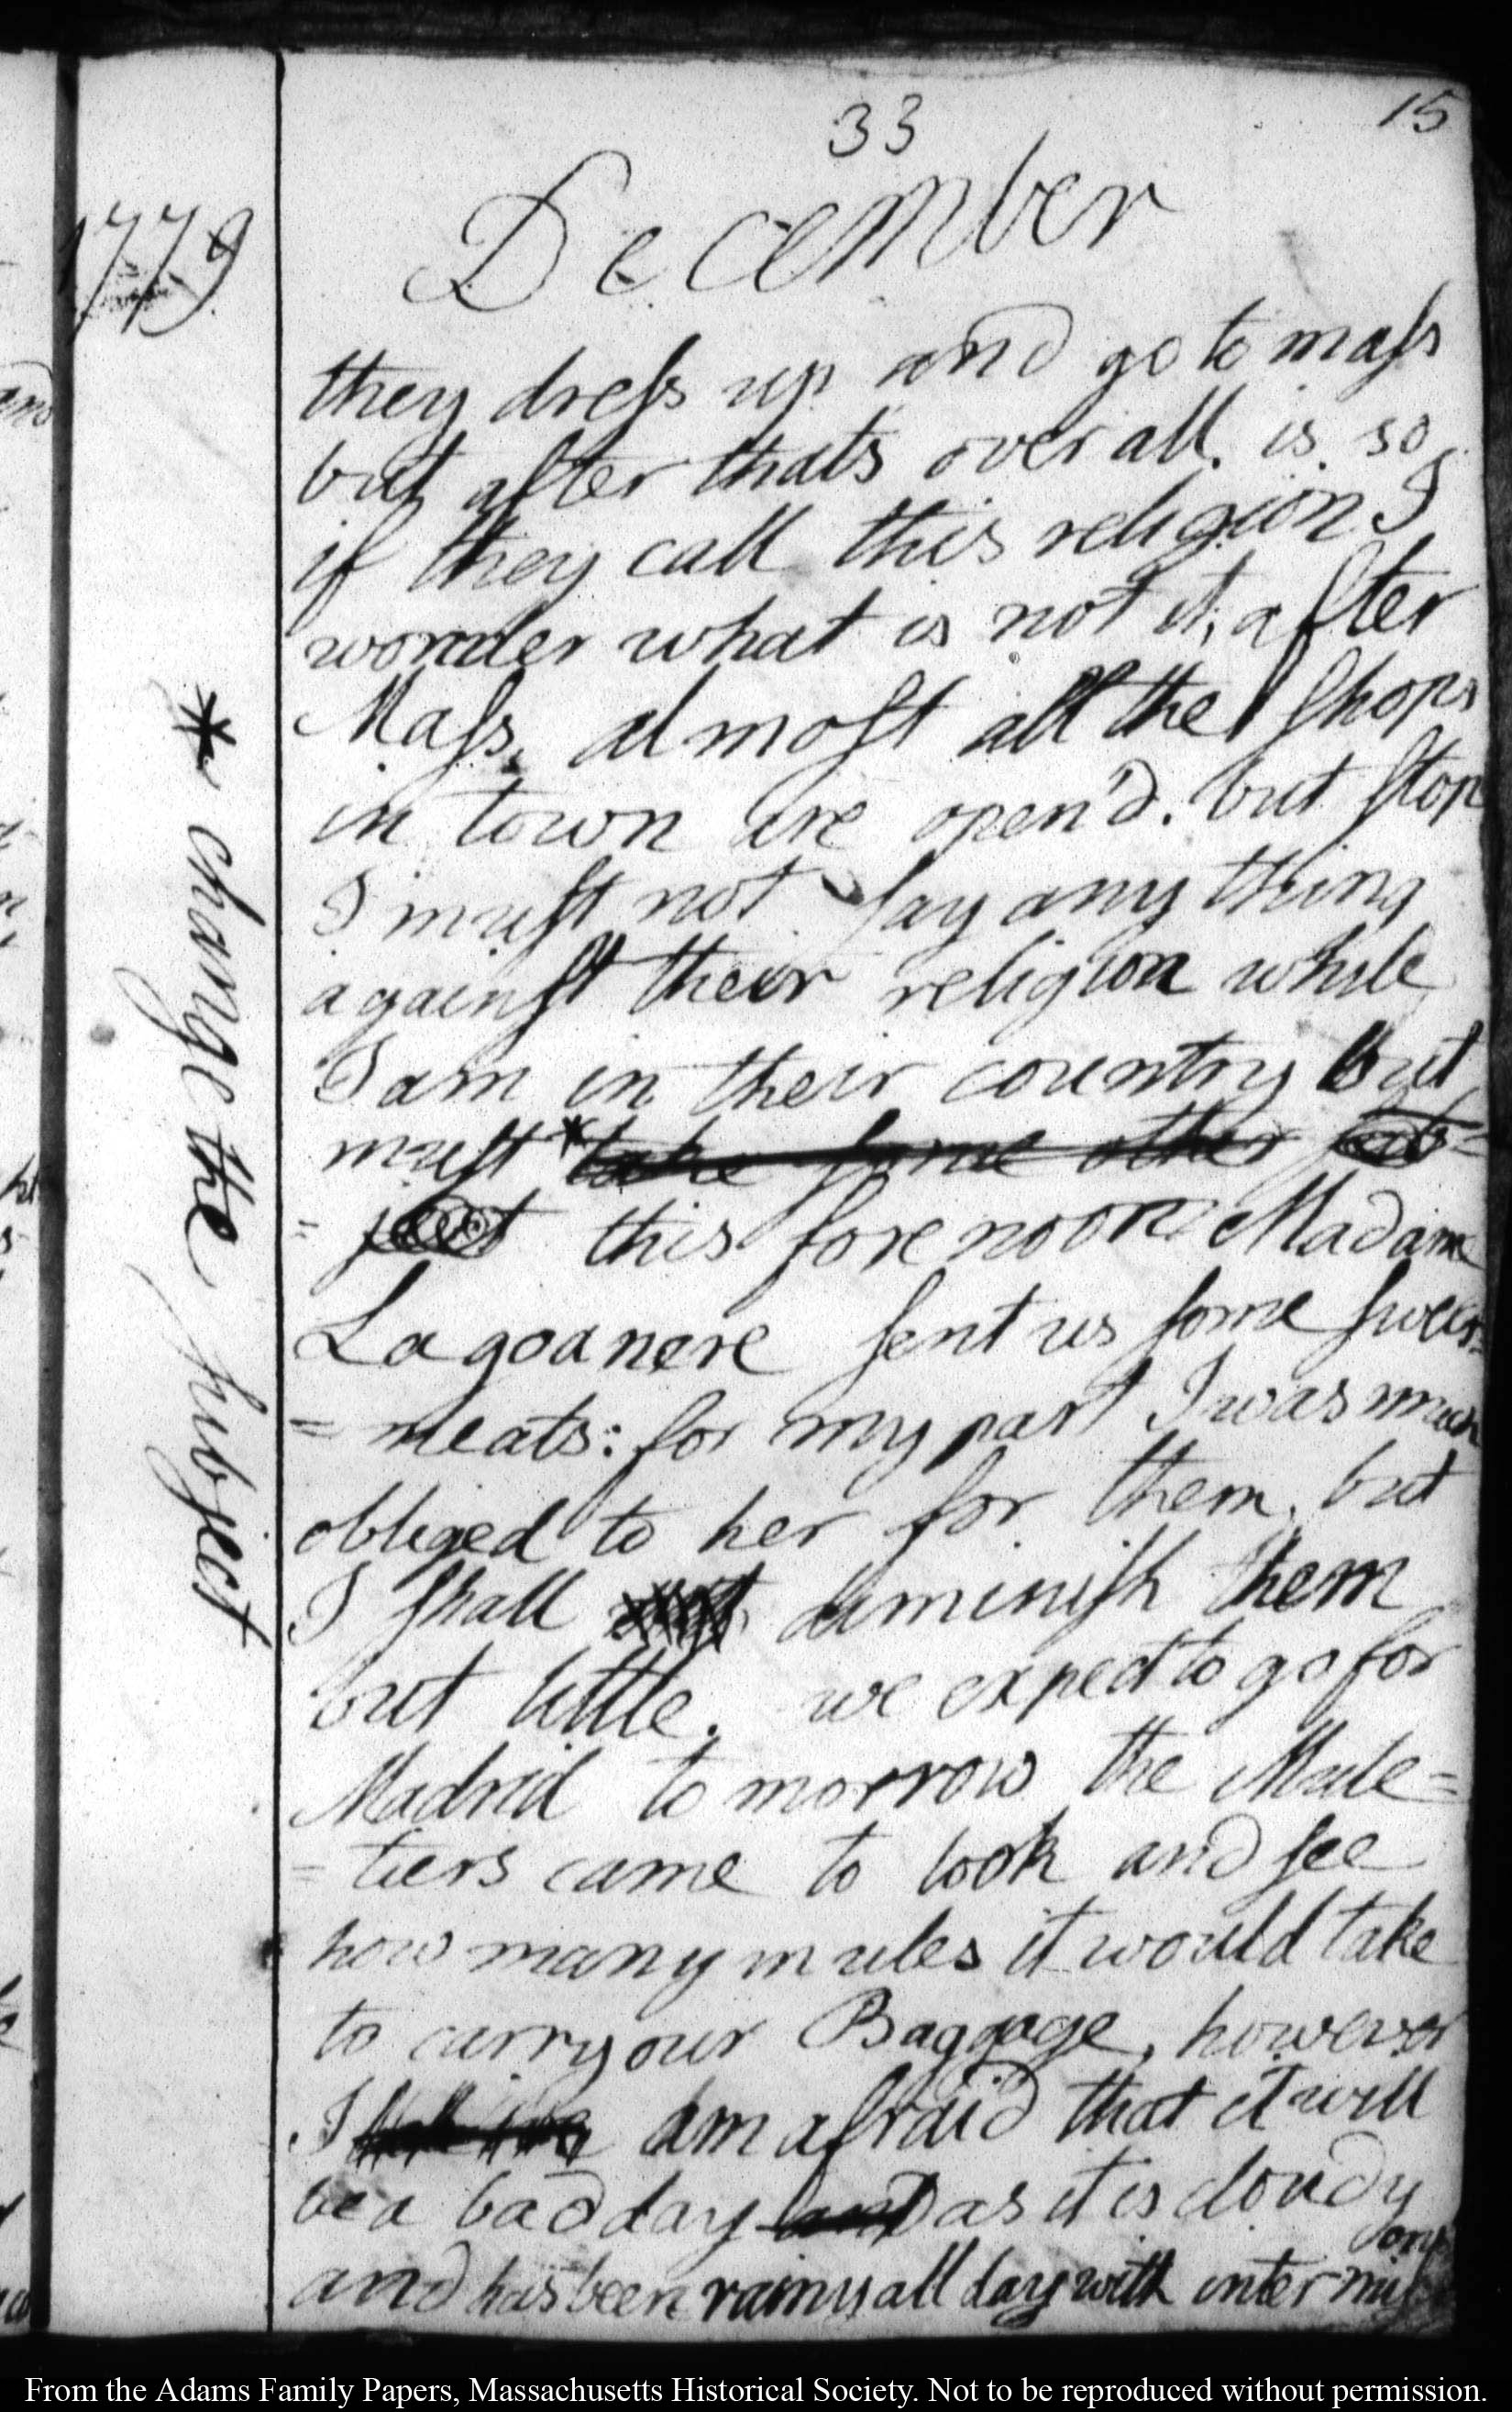 33
15
1779
December
they dreſs up and go to maſs
but after thats over all is so
if they call this religion I
wonder what is not it, after
Maſs, almoſt all the ſhops
in town are open'd. but ſtop
I muſt not ſay any thing
againſt their religion while
I am in their country but
muſt * take ſome other ſub=
=ject this forenoon Madam
Lagoanere ſent us ſome ſweet=
=meats: for my part I was much
obliged to her for them, but
I ſhall diminiſh them
but little. we expect to go for
Madrid to morrow the Mule=
=tiers came to look and ſee
how many mules it would take
to carry our Baggage, however
I am afraid that it will
be a bad day and as it is cloudy
and has been rainy all day with intermiſ
ons
* change the ſubject
From the Adams Family Papers, Massachusetts Historical Society. Not to be reproduced without permission.